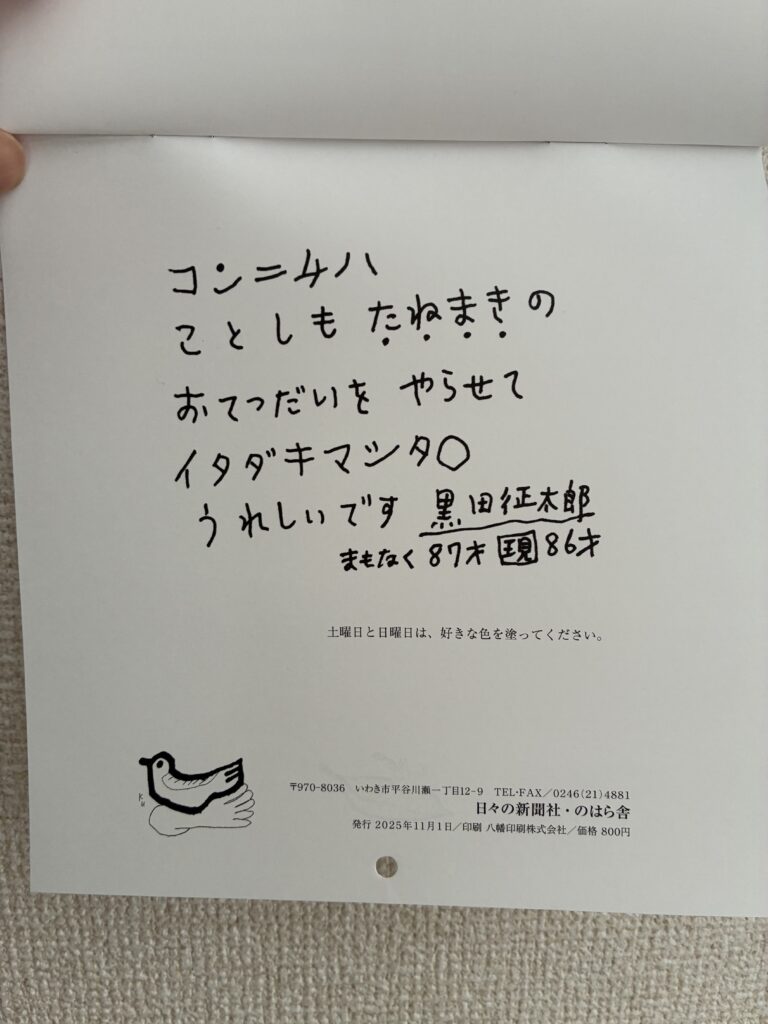 コンニチハ
ことしも たねまきの
おてつだいを やらせて
イタダキマシタ○
うれしいです 黒田征太郎
まもなく 87才 現 86才
土曜日と日曜日は、好きな色を塗ってください。
K.U
〒970-8036 いわき市平谷川瀬一丁目12-9 TEL・FAX／0246(21)4881
日々の新聞社・のはら舎
発行 2025年11月1日／印刷 八幡印刷株式会社／価格 800円